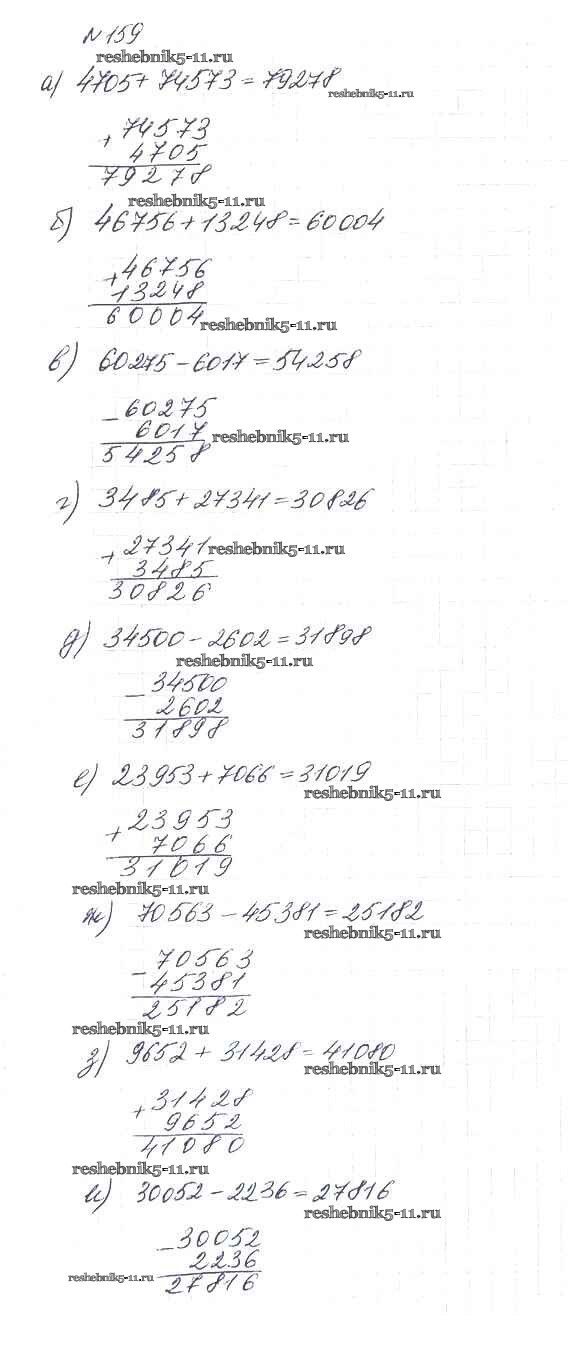 №159
reshebnik5-11.ru
а) 4705 + 74573 = 79278
reshebnik5-11.ru
+ 74573
4705
79278
reshebnik5-11.ru
б) 46756 + 13248 = 60004
+ 46756
13248
60004
reshebnik5-11.ru
в) 60275 - 6017 = 54258
- 60275
6017
reshebnik5-11.ru
54258
г) 3485 + 27341 = 30826
+ 27341
reshebnik5-11.ru
3485
30826
д) 34500 - 2602 = 31898
reshebnik5-11.ru
- 34500
2602
31898
е) 23953 + 7066 = 31019
reshebnik5-11.ru
+ 23953
7066
31019
reshebnik5-11.ru
ж) 70563 - 45381 = 25182
reshebnik5-11.ru
- 70563
45381
25182
reshebnik5-11.ru
з) 9652 + 31428 = 41080
reshebnik5-11.ru
+ 31428
9652
41080
reshebnik5-11.ru
и) 30052 - 2236 = 27816
reshebnik5-11.ru
- 30052
2236
reshebnik5-11.ru
27816